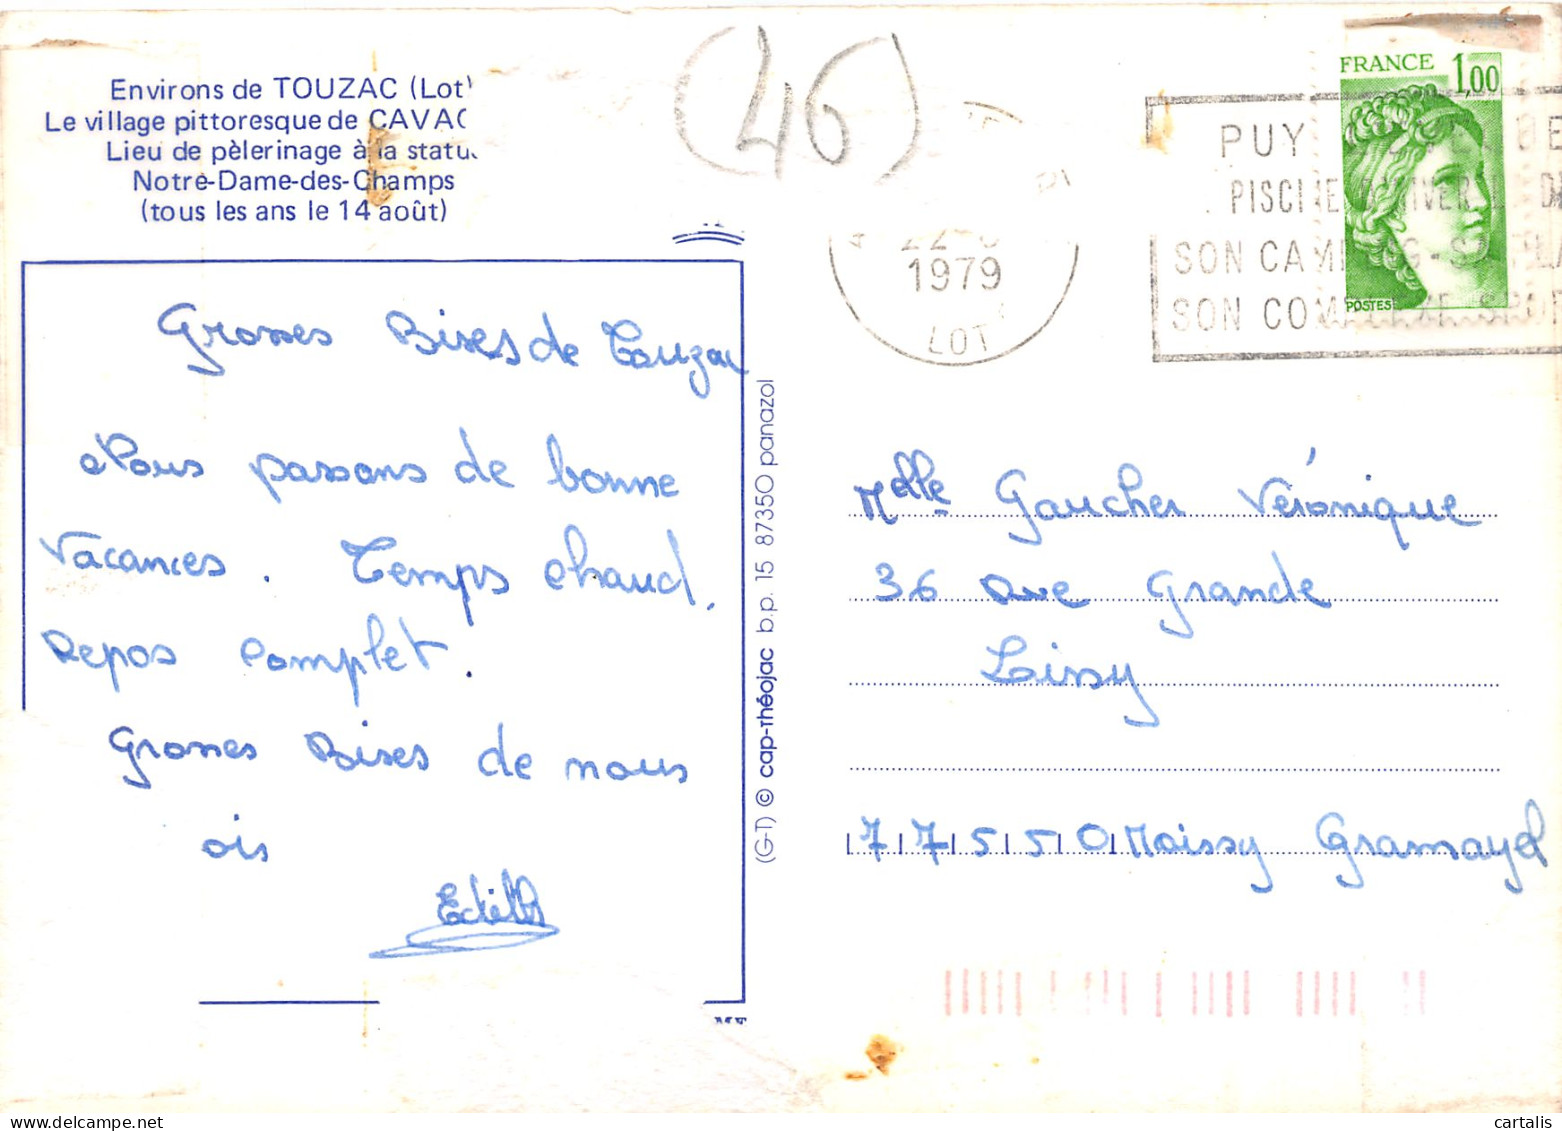 Environs de TOUZAC (Lot)
Le village pittoresque de CAVAC
Lieu de pèlerinage à la statue
Notre-Dame-des-Champs
(tous les ans le 14 août)
(46)
1979
LOT
PUY
PISCINE
SON CAMPING
SON COMPLEXE SPOR
FRANCE 1,00
POSTES
Grosses Bises de Touzac
Nous passons de bonne
vacances. Temps chaud,
repos complet.
Grosses Bises de nous
ois
Edith
(G-T) © cap-théojac b.p. 15 87350 panazol
Melle Gaucher Véronique
36 rue Grande
Lissy
77550 Moissy Gramayel
cartalis